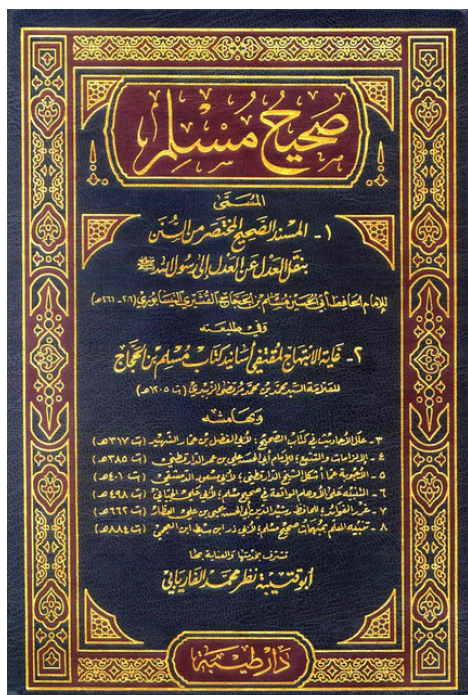 صحيح مسلم
المسمى
١- المسند الصحيح المختصر من السنن
بنقل العدل عن العدل إلى رسول الله ﷺ
للإمام الحافظ أبي الحسين مسلم بن الحجاج القشيري النيسابوري (٢٠٦-٢٦١هـ)
وفي طليعته
٢- غاية الابتهاج لمقتفي أسانيد كتاب مسلم بن الحجاج
للعلامة السيد محمد بن محمد مرتضى الزبيدي (ت ١٢٠٥هـ)
وبهامشه
٣- علل الأحاديث في كتاب الصحيح؛ لأبي الفضل بن عمار الشهيد (ت ٣١٧هـ)
٤- الإلزامات والتتبع؛ للإمام أبي الحسن علي بن عمر الدارقطني (ت ٣٨٥هـ)
٥- الأجوبة عما أشكل الشيخ الدارقطني؛ لأبي مسعود الدمشقي (ت ٤٠١هـ)
٦- التنبيه على الأوهام الواقعة في صحيح مسلم؛ لأبي علي الجياني (ت ٤٩٨هـ)
٧- غرر الفوائد؛ للحافظ رشيد الدين أبي الحسين يحيى بن علي العطار (ت ٦٦٢هـ)
٨- تنبيه المعلم بمبهمات صحيح مسلم؛ لأبي ذر ابن سبط ابن العجمي (ت ٨٨٤هـ)
تشرف بخدمتها والعناية بها
أبو قتيبة نظر محمد الفاريابي
دار طيبة